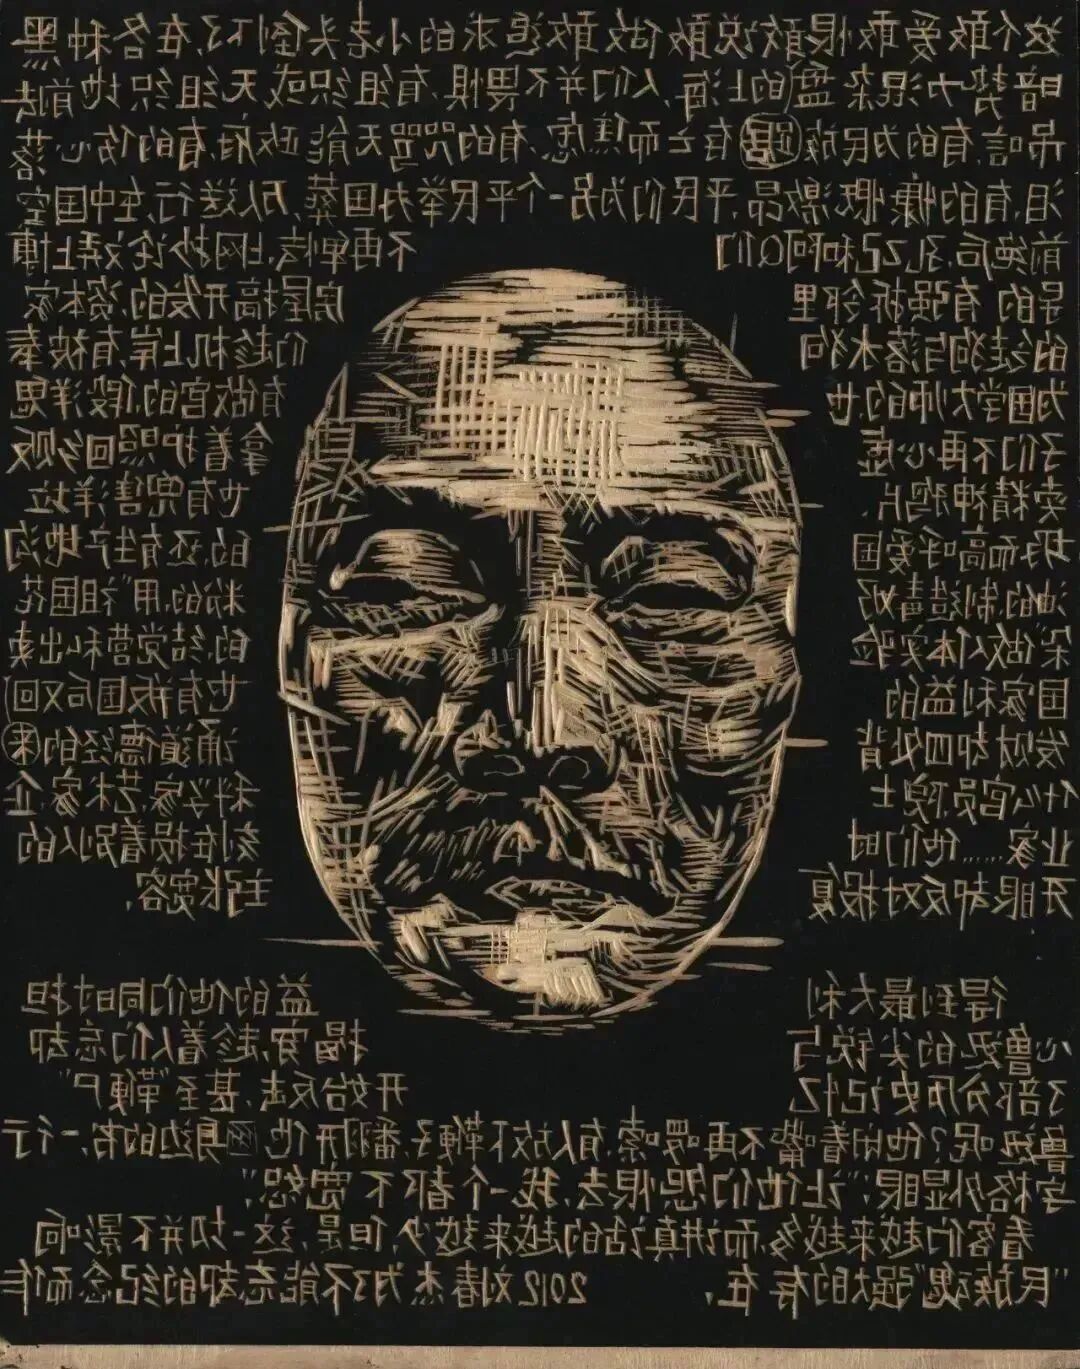 这个敢爱敢恨敢说敢做敢追求的小老头倒下了,在各种黑
暗势力混杂盘的上海,人们并不畏惧,有组织或无组织地前去
吊唁,有的为民族存亡而焦虑,有的咒骂无能政府,有的伤心落
泪,有的慷慨激昂,平民们为另一个平民举办国葬,万人送行,在中国空
前绝后,孔乙己和阿Q们 不再单恋,上网抄论文弄上博
导的,有强拆邻里 房屋搞开发的,资本家
的乏狗与落水狗 们趁机上岸,有被奉
为国学大师的,也 有做官的,假洋鬼
子们不再心虚 拿着护照回乡贩
卖精神鸦片, 也有兜售洋垃
圾而高呼爱国 的,还有生产地沟
油的,制造毒奶 粉的,用"祖国花
朵"做人体实验 的,结党营私出卖
国家利益的 也有叛国后又回
发财却四处背 诵道德经的来
什么官员院士 科学家,艺术家,企
业家……他们时 刻在损着别人的
牙眼却反对报复 主张宽容,
得到最大利 益的他们同时担
心鲁迅的尖锐与 揭穿,趁着人们忘却
了部分历史记忆, 开始反击,甚至"鞭尸"
鲁迅呢?他闭着嘴不再啰嗦,有人放下鞭子,翻开他身边的书,一行
字格外显眼:"让他们怨恨去,我一个都不宽恕",
看客们越来越多,而讲真话的越来越少,但是,这一切并不影响
"民族魂"强大的存在. 2012 刘春杰为了不能忘却的纪念而作